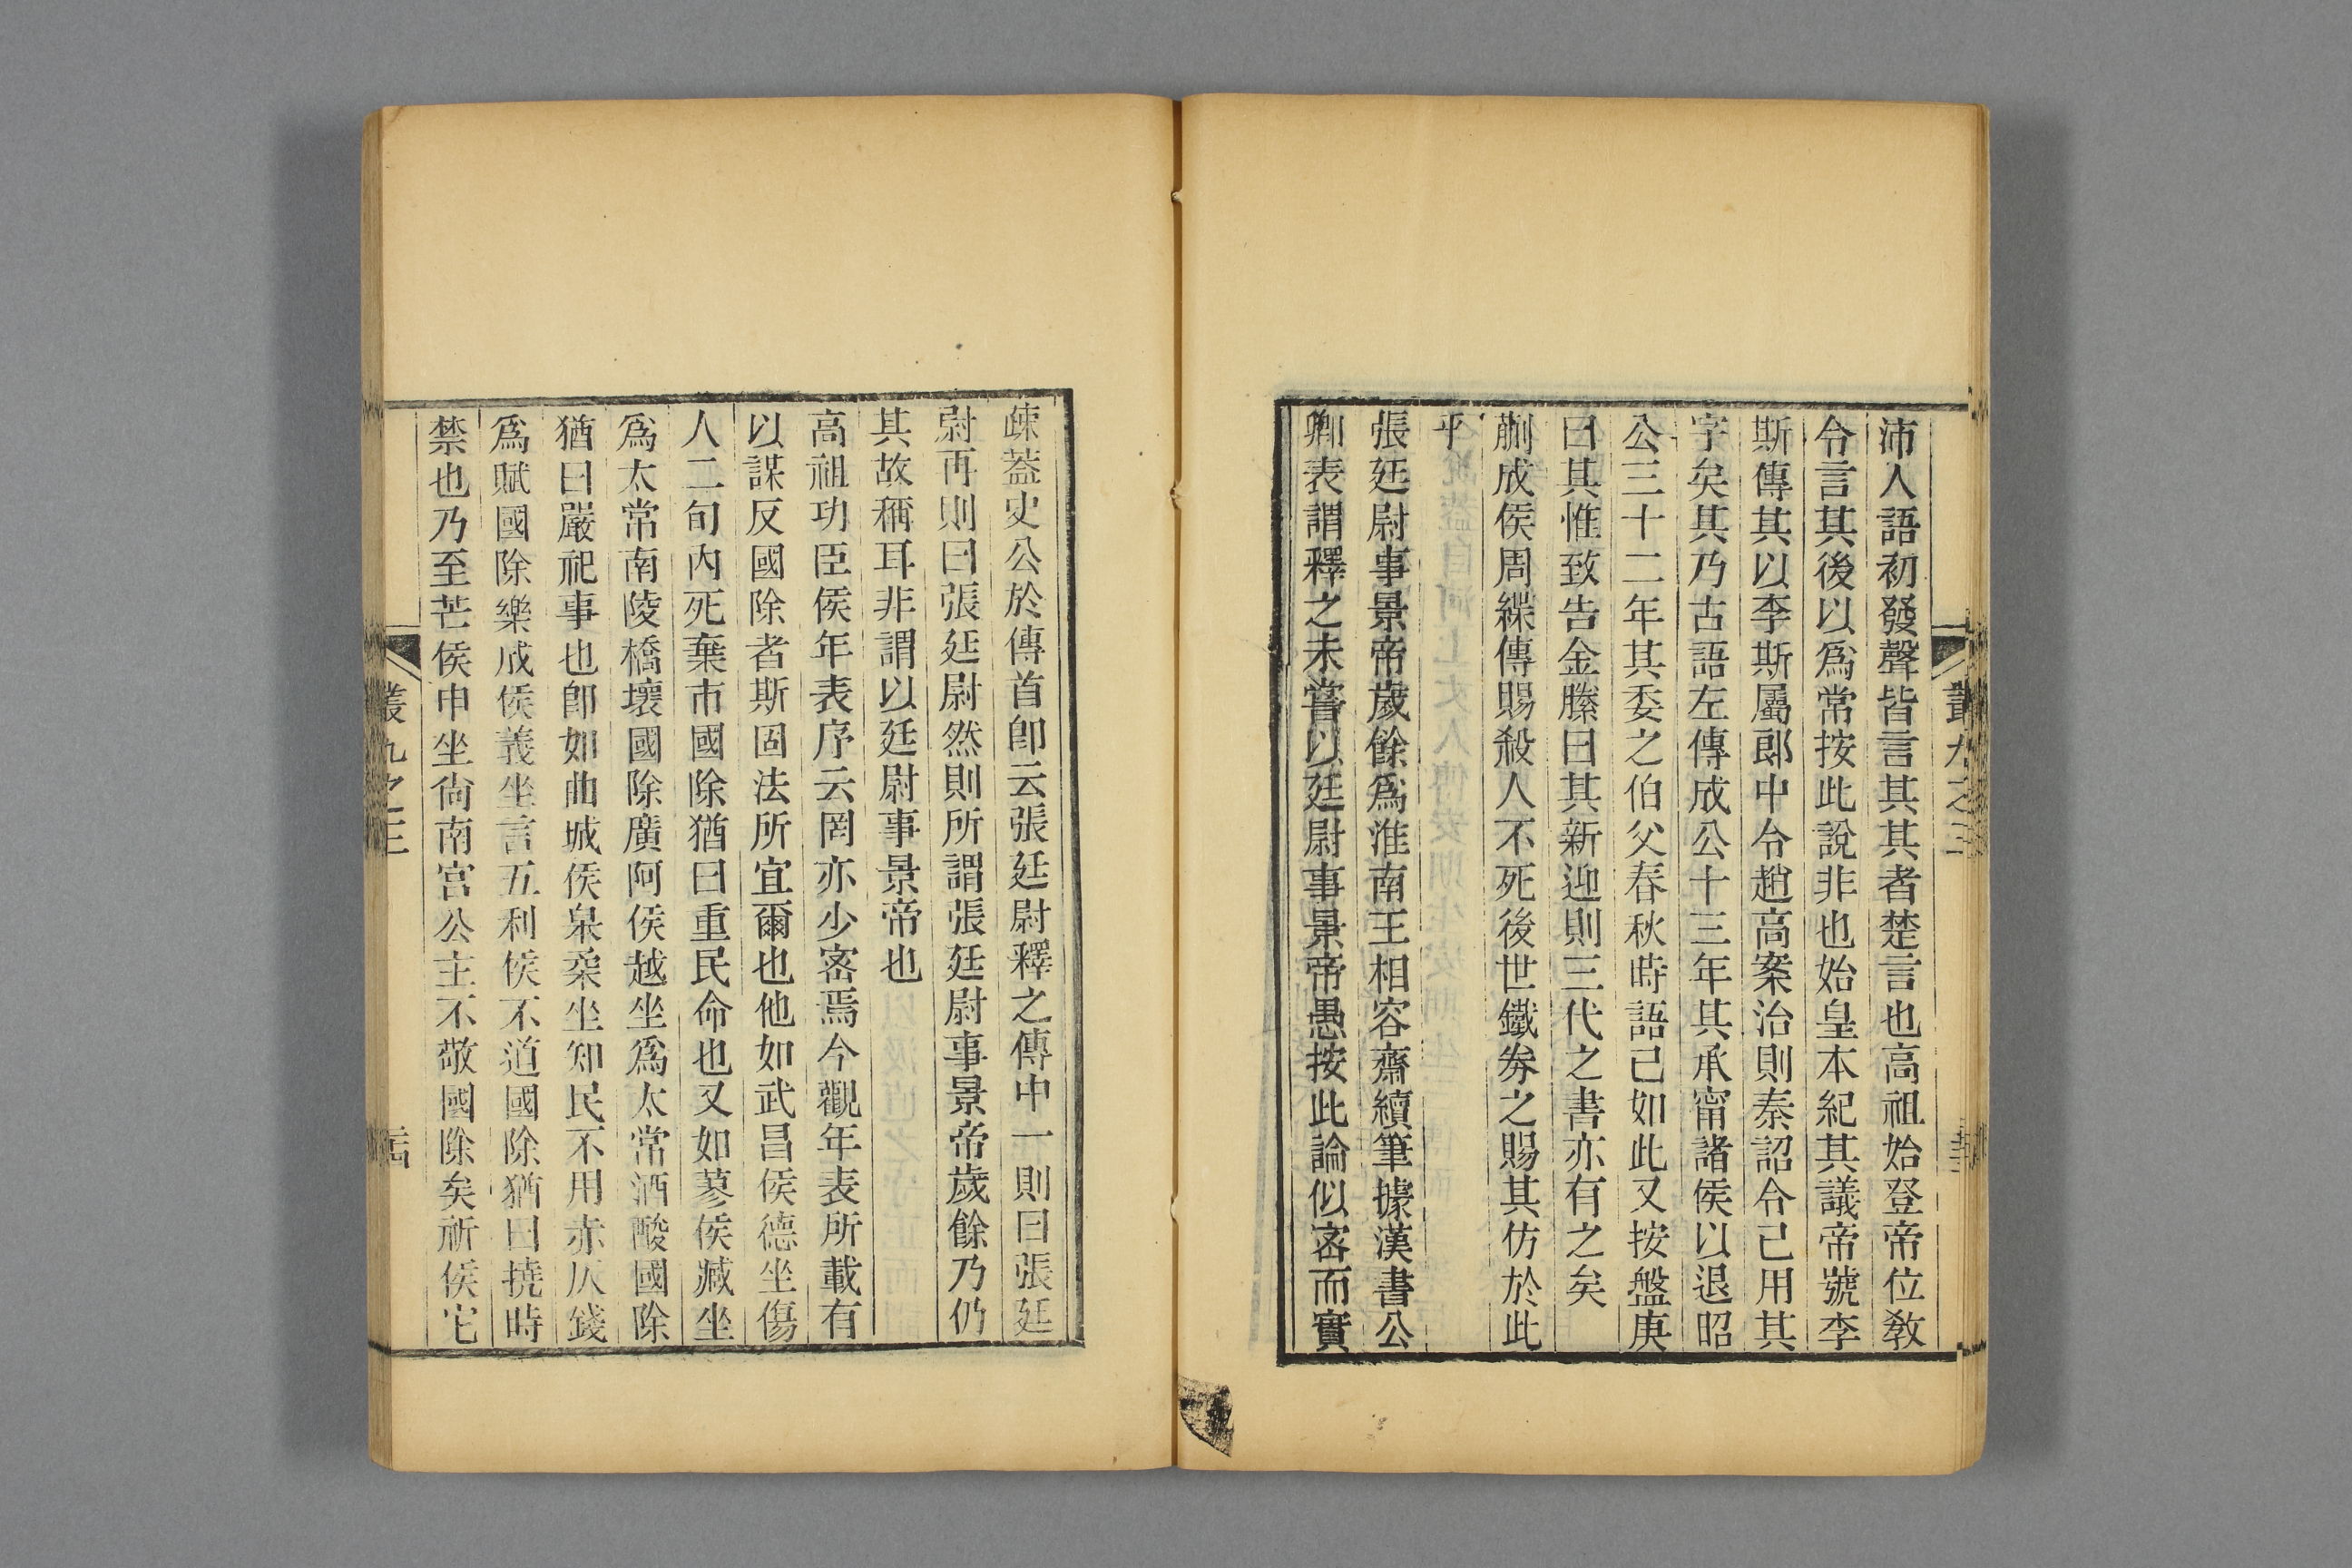 沛人語初發聲皆言其其者楚言也高祖始登帝位敎
令言其後以爲常按此說非也始皇本紀其議帝號李
斯傳其以李斯屬郎中令趙高案治則秦詔令已用其
字矣其乃古語左傳成公十三年其承甯諸侯以退昭
公三十二年其委之伯父春秋時語已如此又按盤庚
曰其惟致告金縢曰其新迎則三代之書亦有之矣
蒯成侯周緤傳賜殺人不死後世鐵劵之賜其仿於此
乎
張廷尉事景帝歲餘爲淮南王相容齋續筆據漢書公
卿表謂釋之未嘗以廷尉事景帝愚按此論似密而實
疎蓋史公於傳首卽云張廷尉釋之傳中一則曰張廷
尉再則曰張廷尉然則所謂張廷尉事景帝歲餘乃仍
其故稱耳非謂以廷尉事景帝也
高祖功臣侯年表序云罔亦少密焉今觀年表所載有
以謀反國除者斯固法所宜爾也他如武昌侯德坐傷
人二旬內死棄市國除猶曰重民命也又如蓼侯臧坐
爲太常南陵橋壞國除廣阿侯越坐爲太常酒酸國除
猶曰嚴祀事也卽如曲城侯皋柔坐知民不用赤仄錢
爲賦國除樂成侯義坐言五利侯不道國除猶曰撓時
禁也乃至芒侯申坐尙南宮公主不敬國除矣祈侯它
叢九之三